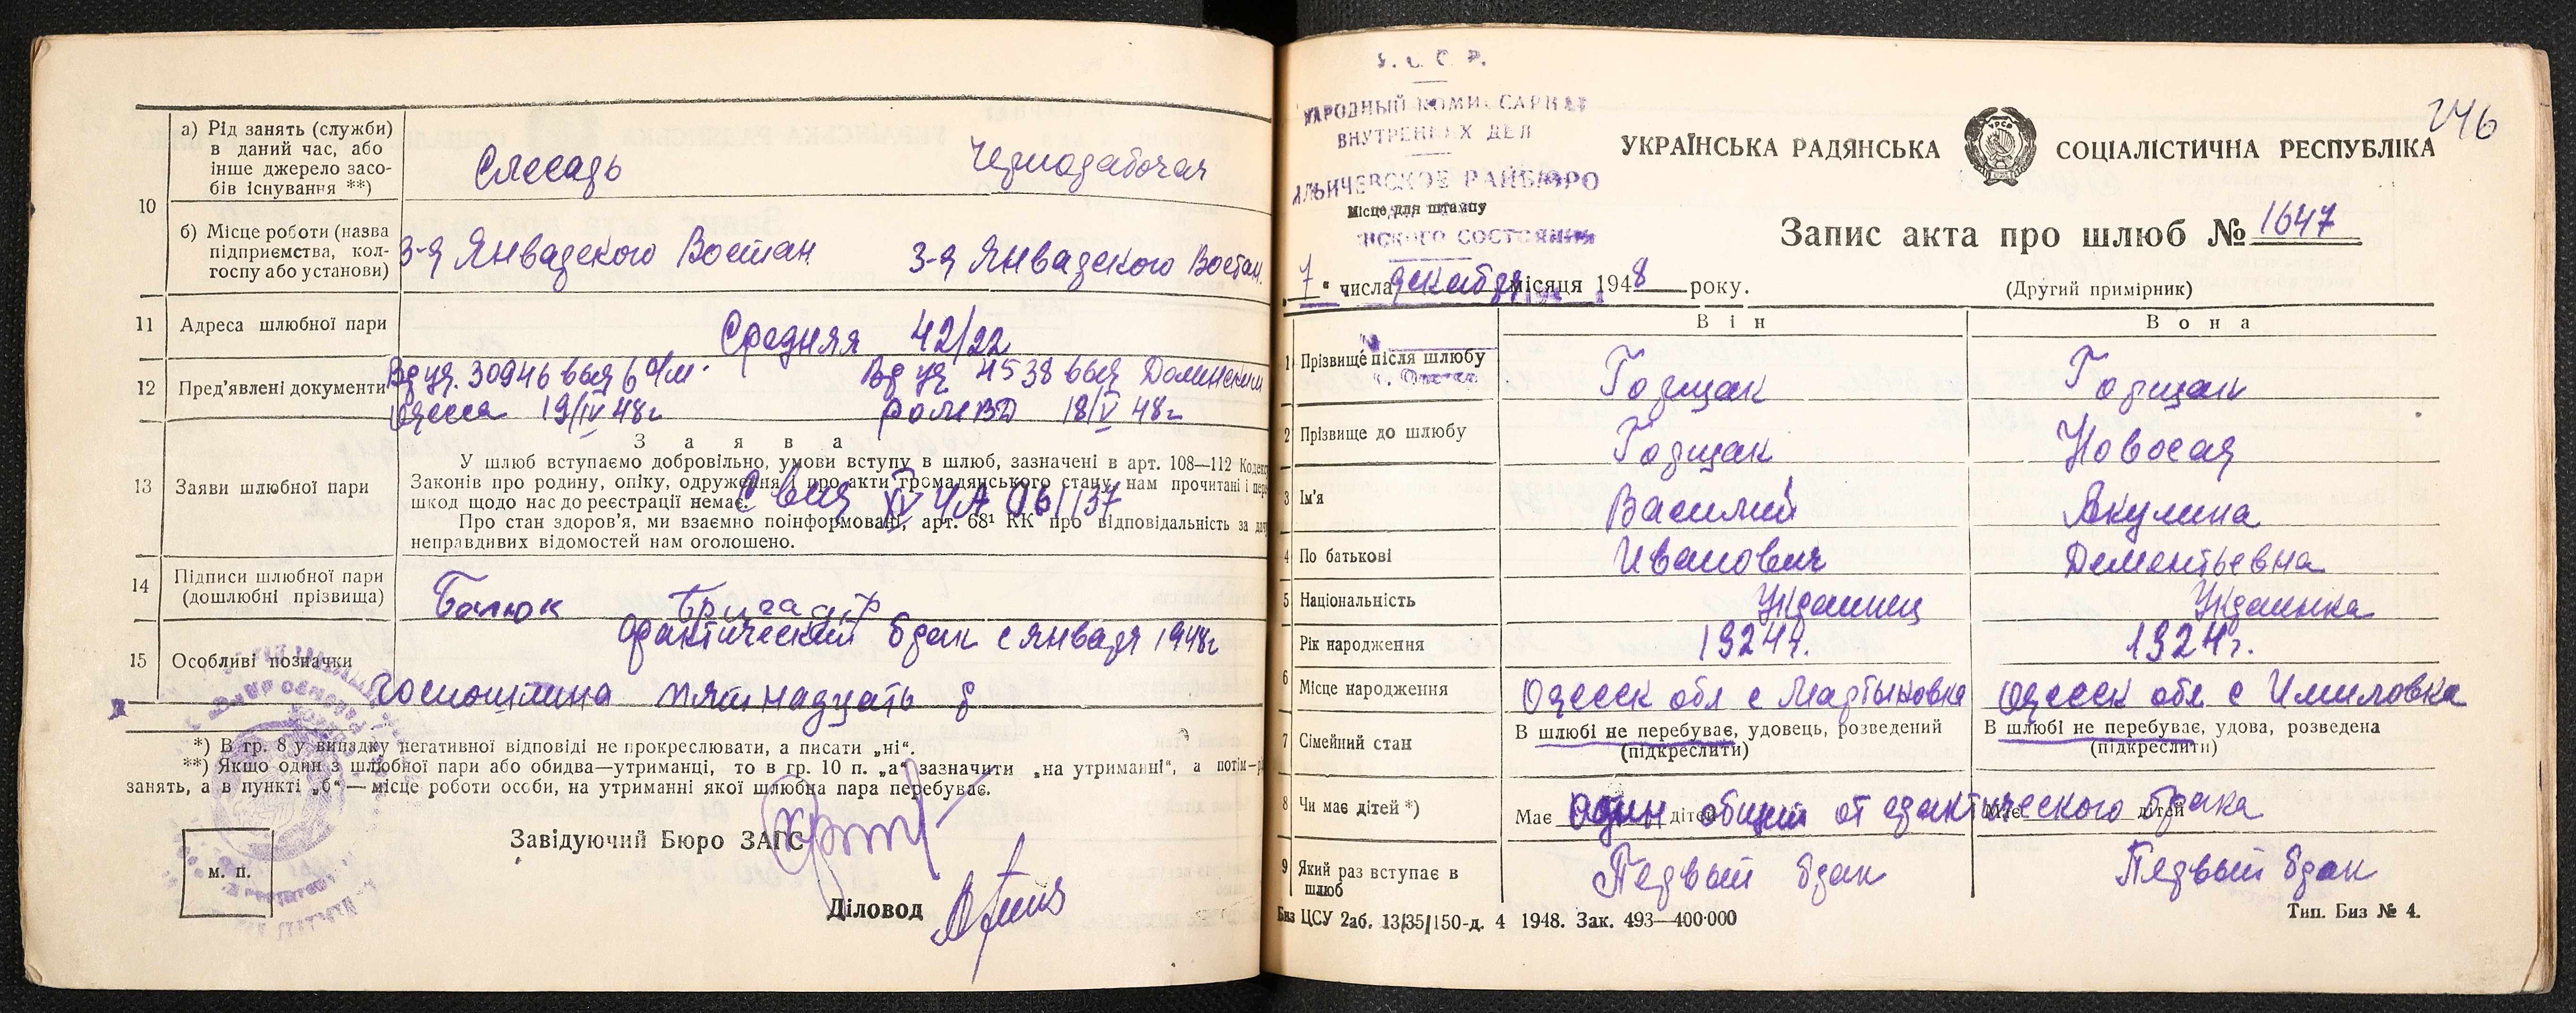 а) Рід занять (служби)
в даний час, або
інше джерело засо-
бів існування **)
Слесарь
Чернорабочая
10
б) Місце роботи (назва
підприємства, кол-
госпу або установи)
3-я Январского Востан.
3-я Январского Востан.
11 Адреса шлюбної пари
Средняя 42/22
12 Пред'явлені документи
30946 выд 6 о/м.
Одесса 19/IV 48г
4538 выд
18/V 48г
З а я в а
13 Заяви шлюбної пари
У шлюб вступаємо добровільно, умови вступу в шлюб, зазначені в арт. 108—112 Кодекс
Законів про родину, опіку, одруження і про акти громадянського стану, нам прочитані і пере
шкод щодо нас до реєстрації немає.
Про стан здоров'я, ми взаємно поінформовані, арт. 68¹ КК про відповідальність за
неправдивих відомостей нам оголошено.
14 Підписи шлюбної пари
(дошлюбні прізвища)
15 Особливі позначки
фактический брак с января 1948г
госпошлина пятнадцать р
*) В гр. 8 у випадку негативної відповіді не прокреслювати, а писати „ні“.
**) Якщо один з шлюбної пари або обидва—утриманці, то в гр. 10 п. „а“ зазначити „на утриманні“, а потім—р
занять, а в пункті „б“ — місце роботи особи, на утриманні якої шлюбна пара перебуває.
Завідуючий Бюро ЗАГС
м. п.
Діловод
У. С. С. Р.
НАРОДНЫЙ КОМИССАРИАТ
ВНУТРЕННИХ ДЕЛ
ИЛЬИЧЕВСКОЕ РАЙБЮРО
Місце для штампу
СОСТОЯНИЯ
246
УКРАЇНСЬКА РАДЯНСЬКА
УРСР
СОЦІАЛІСТИЧНА РЕСПУБЛІКА
Запис акта про шлюб № 1647
7 “ числа декабря місяця 1948 року.
(Другий примірник)
Він
Вона
1 Прізвище після шлюбу
Горщак
Горщак
2 Прізвище до шлюбу
Горщак
Новосад
3 Ім'я
Василий
Акулина
4 По батькові
Иванович
Дементьевна
5 Національність
Украинец
Украинка
Рік народження
1924г.
1924г.
6 Місце народження
Одесск обл с Мартыновка
Одесск обл с Имиловка
7 Сімейний стан
В шлюбі не перебуває, удовець, розведений
(підкреслити)
В шлюбі не перебуває, удова, розведена
(підкреслити)
8 Чи має дітей *)
Має один дітей общий от фактического брака
Має дітей
9 Який раз вступає в
шлюб
Первый брак
Первый брак
Биз ЦСУ 2аб. 13/35/150-д. 4 1948. Зак. 493—400·000
Тип. Биз № 4.